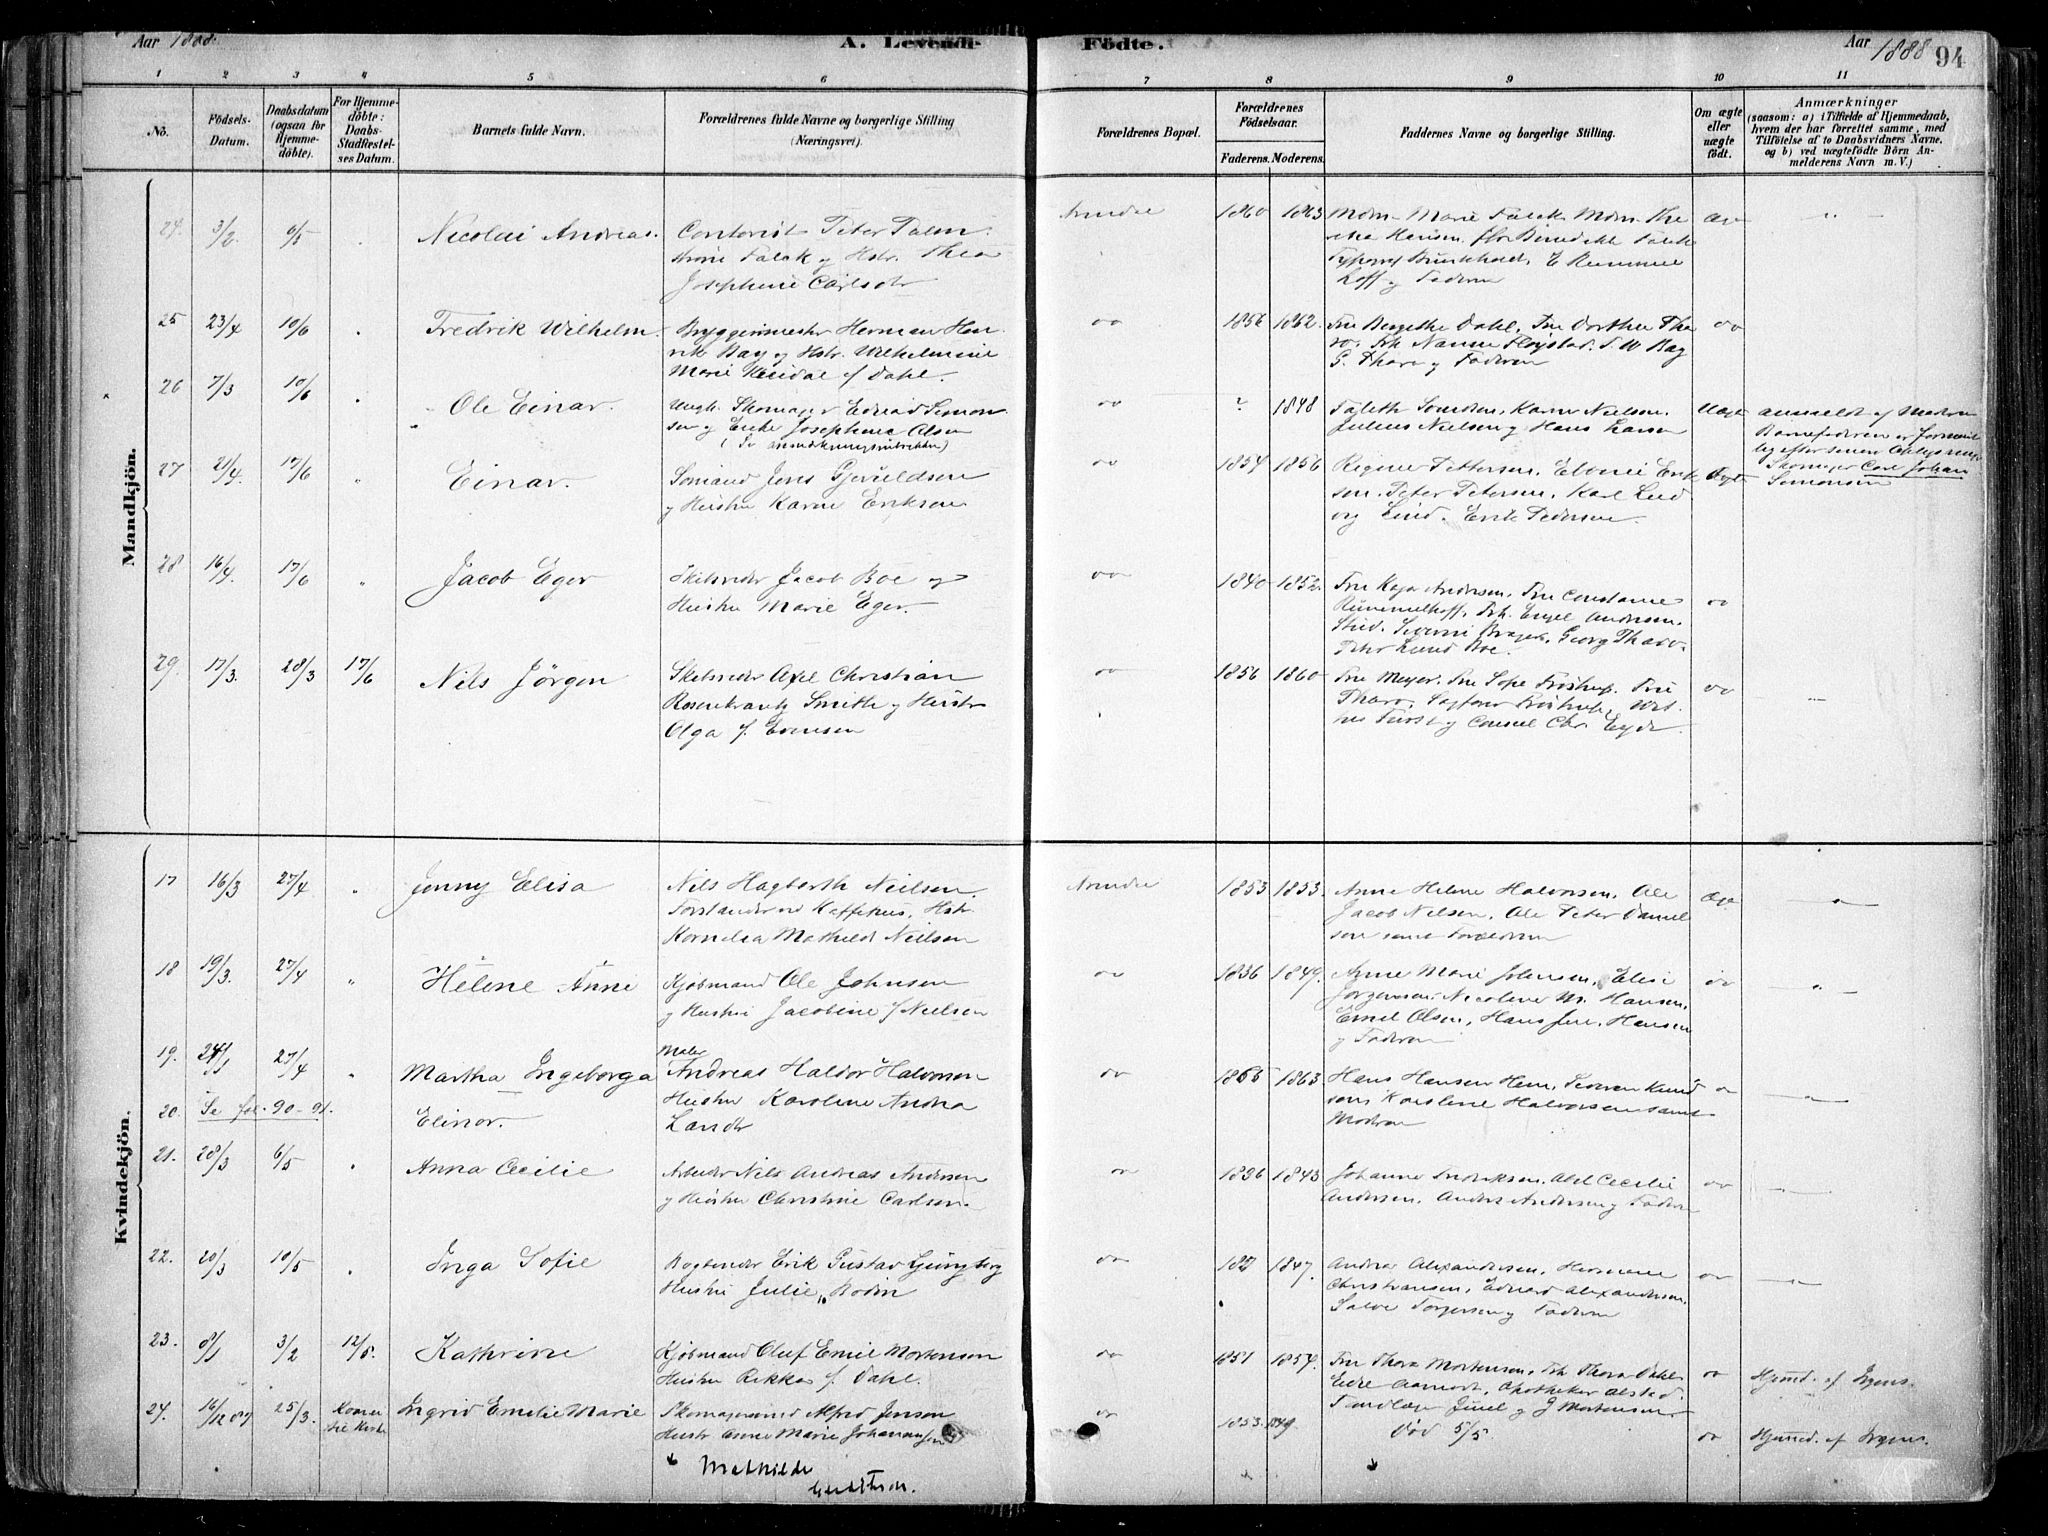 Aar 1888.
A. Levende Födte.
Aar 1888 94
1 2 3 4 5 6 7 8 9 10 11
No.
Födsels-Datum.
Daabsdatum (ogsaa for Hjemme-döbte).
For Hjemme-döbte: Daabs-Stadfæstel-ses Datum.
Barnets fulde Navn.
Forældrenes fulde Navne og borgerlige Stilling
(Næringsvei).
Forældrenes Bopæl.
Forældrenes Födselsaar.
Faderens. Moderens.
Faddernes Navne og borgerlige Stilling.
Om ægte eller uægte födt.
Anmærkninger
(saasom: a) i Tilfælde af Hjemmedaab,
hvem der har forrettet samme, med
Tilföielse af to Daabsvidners Navne,
og b) ved uægtefödte Börn An-
melderens Navn m. V.)
Mandkjön.
24. 3/2. 6/5 Nicolai Andreas. Contorist Peter Palm
strøm Falck og Hstr. Thea
Josephine Carlsdtr
Arendal 1860 1863 Mdm. Marie Falck, Mdm. The
Hansen,
og Faderen
Ægte
25 23/4 10/6 Fredrik Wilhelm. Bryggerimester Herman Hen
rik Bay og Hstr. Wilhelmine
Marie f. Dahl.
do 1856 1862. Fru Bergithe Dahl, Fru Dorthea Tha
ro. Frk Nanna Fløjstad. F. W Bay
G. Tharo og Faderen
do
26 7/3 10/6 Ole Einar. Ungk. Skomager Edvard Simon
sen og Enke Josephine Olsen
(Se anmærkningsrubrikken)
do ? 1848 Karen Nielsen.
Julius Nielsen og Hans Larsen
Uægte anmeldt af Moderen
Barnefaderen er forment
lig efter senere Oplysning
Skomager Carl Johan
Simonsen
27 21/4. 17/6 Einar. Sømand Jens Gjeruldsen
og Hustru Karen Eriksen
do 1854 1856 Regine Pettersen, Erik
sen. Peter Petersen, Karl Lud
vig Lind. Erik Pedersen.
Ægte
28 16/4. 17/6 " Jacob Eger Skibsreder Jacob Boe og
Hustru Marie Eger.
do 1840 1852. Fru Kaja Andersen, Fru Constance
Rummelhoff, Frk. Engel Andersen,
Stud. Georg Tharo.
Peter Lund Boe.
do
29. 17/3. 28/3 17/6 Nils Jörgen Skibsreder Axel Christian
Rosenkrantz Smith og Hustr
Olga f. Evensen
do 1856 1860 Fru Meyer. Fru Sope Frøstrup, Fru
Tharo, Sagfører Frøstrup,
Fürst og Consul Chr. Eyde.
do
Kvindekjön.
17 16/3 27/4 " Jenny Elisa Nils Hagbarth Neilsen
Forstander ved Kaffehus, Hstr.
Kornelia Mathilde Neilsen
Arendal 1853 1853. Anne Helene Halvorsen, Ole
Jacob Nilsen, Ole Peter Daniel
sen samt Forældrene
Ægte
18 19/3. 27/4 " Helene Anne Kjøbmand Ole Johnsen
og Hustru Jacobine f Neilsen
do 1836 1849. Anne Marie Johnsen, Elise
Jørgensen, Nicoline M. Hansen,
Emil Olsen, Hans Hansen
og Faderen
do
19. 24/1 27/4 " Martha Ingeborga Maler
Andreas Haldor Halvorsen
Hustru Karoline Andrea
Landr
do 1865 1863 Hans Hansen Hem, Severin Knud
sen, Karoline Halvorsen samt
Moderen
20. Se fol. 90-91. Elinor.
21. 28/3 6/5 Anna Cecilie Arbeider Nils Andreas Andersen
og Hustru Christine Carlsen.
do 1836 1843 Johanne Abel Cecilie
Andersen, Anders Andersen og Faderen
do
22. 20/3 10/5 Inga Sofie Bogbinder Erik Gustav Ljungberg
Hustru Julie Bodin
do 182 1847. Andrea Alexandersen, Hermane
Christiansen, Edvard Alexandersen,
Salve Torgersen og Faderen
do
23. 8/1 3/2 12/5. Kathrine Kjøbmand Oluf Emil Mortensen
Hustru Rikka f. Dahl.
do 1851 1854. Fru Thora Mortensen, Frk Thora Dahl
Apotheker Alsted,
Tandlæge Juul og J Mortensen.
do Hjemd. af Irgens.
24. 16/12 87 25/3. Ingrid Emilie Marie Skomagersvend Alfred Jensen
Hustr Anne Marie Johannessen
Mathilde
do 1853. 1849 Død 5/5
do Hjemmd. af Irgens.